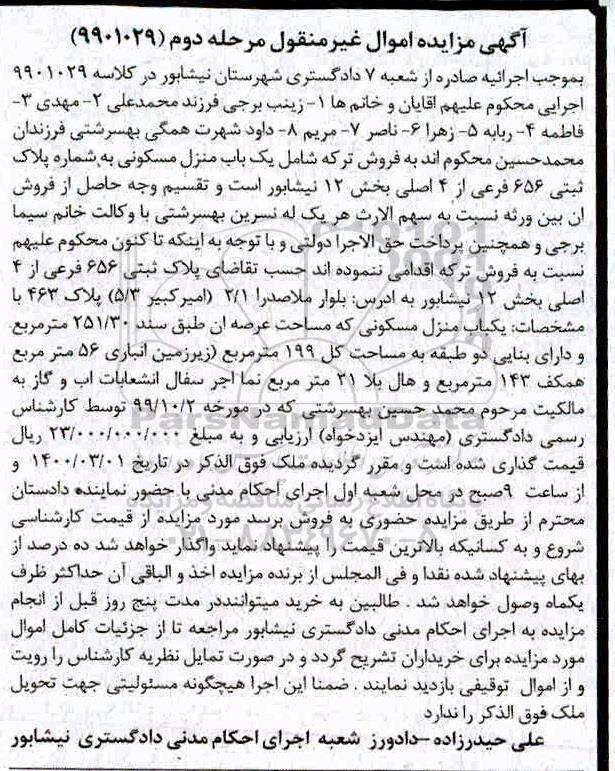 آگهی مزایده اموال غیر منقول مرحله دوم (۹۹۰۱۰۲۹)
بموجب اجرائیه صادره از شعبه ۷ دادگستری شهرستان نیشابور در کلاسه ۹۹۰۱۰۲۹
اجرایی محکوم علیهم اقایان و خانم ها ۱- زینب برجی فرزند محمدعلی ۲- مهدی ۳-
فاطمه ۴- ربابه ۵- زهرا ۶- ناصر ۷- مریم ۸- داود شهرت همگی بهسرشتی فرزندان
محمدحسین محکوم اند به فروش ترکه شامل یک باب منزل مسکونی به شماره پلاک
ثبتی ۶۵۶ فرعی از ۴ اصلی بخش ۱۲ نیشابور است و تقسیم وجه حاصل از فروش
ان بین ورثه نسبت به سهم الارث هر یک له نسرین بهسرشتی با وکالت خانم سیما
برجی و همچنین پرداخت حق الاجرا دولتی و با توجه به اینکه تا کنون محکوم علیهم
نسبت به فروش ترکه اقدامی ننموده اند حسب تقاضای پلاک ثبتی ۶۵۶ فرعی از ۴
اصلی بخش ۱۲ نیشابور به ادرس: بلوار ملاصدرا ۲/۱ (امیرکبیر ۵/۳) پلاک ۴۶۳ با
مشخصات: یکباب منزل مسکونی که مساحت عرصه ان طبق سند ۲۵۱/۳۰ مترمربع
و دارای بنایی دو طبقه به مساحت کل ۱۹۹ مترمربع (زیرزمین انباری ۵۶ متر مربع
همکف ۱۴۳ مترمربع و هال بلا ۲۱ متر مربع نما اجر سفال انشعابات اب و گاز به
مالکیت مرحوم محمد حسین بهسرشتی که در مورخه ۹۹/۱۰/۲ توسط کارشناس
رسمی دادگستری (مهندس ایزدخواه) ارزیابی و به مبلغ ۲۳/۰۰۰/۰۰۰/۰۰۰ ریال
قیمت گذاری شده است و مقرر گردیده ملک فوق الذکر در تاریخ ۱۴۰۰/۰۳/۰۱ و
از ساعت ۹صبح در محل شعبه اول اجرای احکام مدنی با حضور نماینده دادستان
محترم از طریق مزایده حضوری به فروش برسد مورد مزایده از قیمت کارشناسی
شروع و به کسانیکه بالاترین قیمت را پیشنهاد نماید واگذار خواهد شد ده درصد از
بهای پیشنهاد شده نقدا و فی المجلس از برنده مزایده اخذ و الباقی آن حداکثر ظرف
یکماه وصول خواهد شد . طالبین به خرید میتواننددر مدت پنج روز قبل از انجام
مزایده به اجرای احکام مدنی دادگستری نیشابور مراجعه تا از جزئیات کامل اموال
مورد مزایده برای خریداران تشریح گردد و در صورت تمایل نظریه کارشناس را رویت
و از اموال توقیفی بازدید نمایند . ضمنا این اجرا هیچگونه مسئولیتی جهت تحویل
ملک فوق الذکر را ندارد
علی حیدرزاده –دادورز شعبه اجرای احکام مدنی دادگستری نیشابور
ParsNamadData
۰۲۱-۸۸۳۴۹۶۷۰-۸